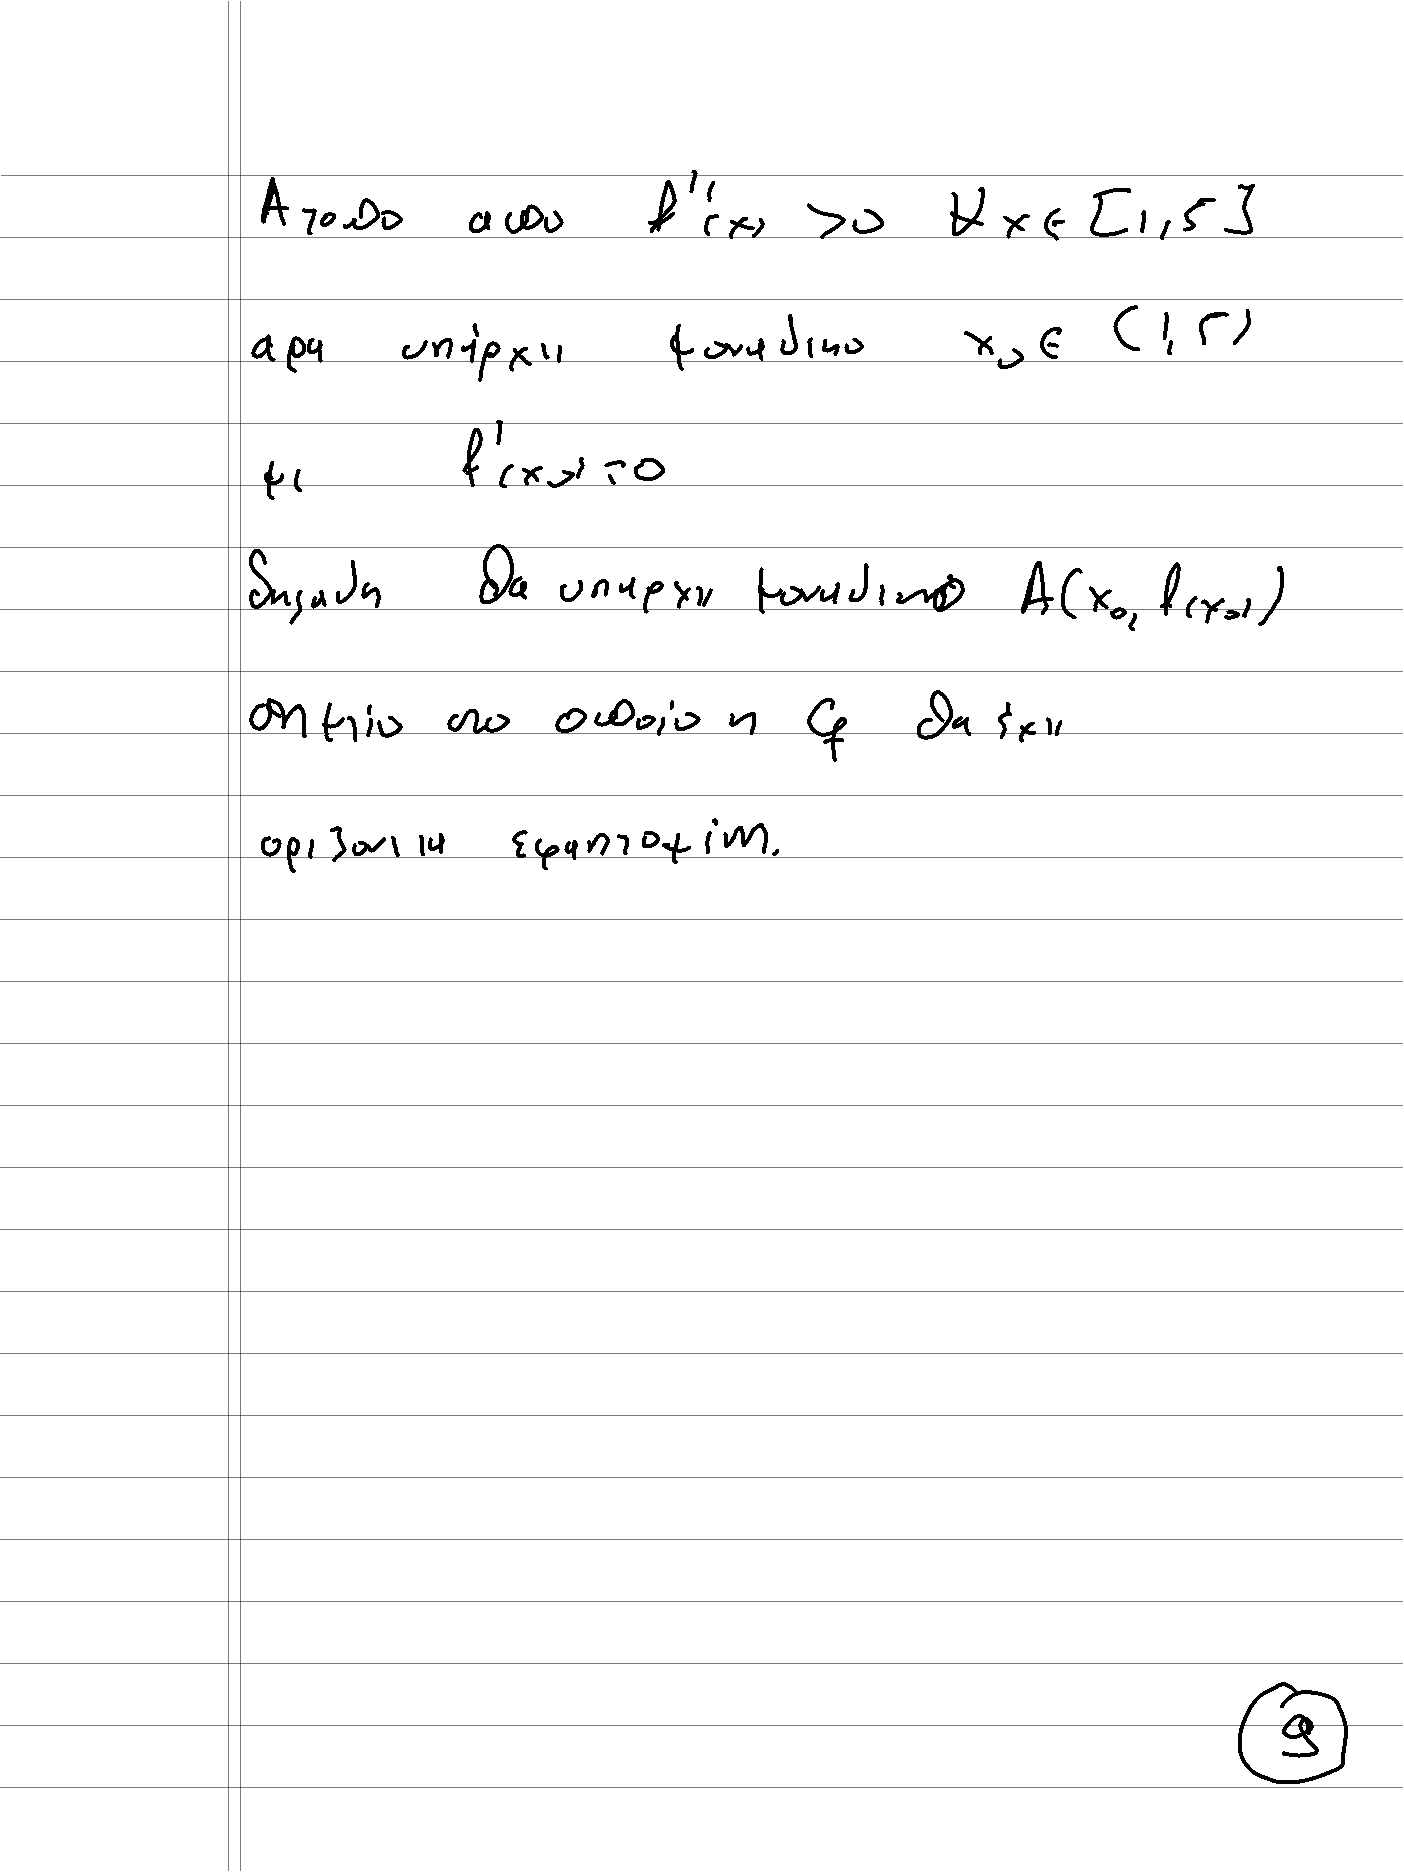 Άτοπο αφού f''(x) >0 ∀x∈[1,5]
άρα υπάρχει μοναδικό x₀∈(1,5)
με f'(x₀)=0
δηλαδή θα υπάρχει μοναδικό A(x₀, f(x₀))
σημείο στο οποίο η Cf θα έχει
οριζόντια εφαπτομένη.
9